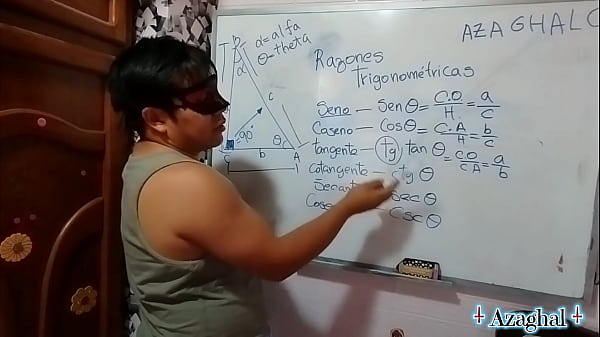 AZAGHALC
α=alfa
θ=theta
B
α
Razones
Trigonométricas
c
90°
θ
C
b
A
Seno — Sen θ = C.O/H = a/c
Coseno — Cos θ = C.A/H = b/c
tangente — tg tan θ = CO/CA = a/b
cotangente — ctg θ
Secant Sec θ
Cose Csc θ
‡ Azaghal ‡